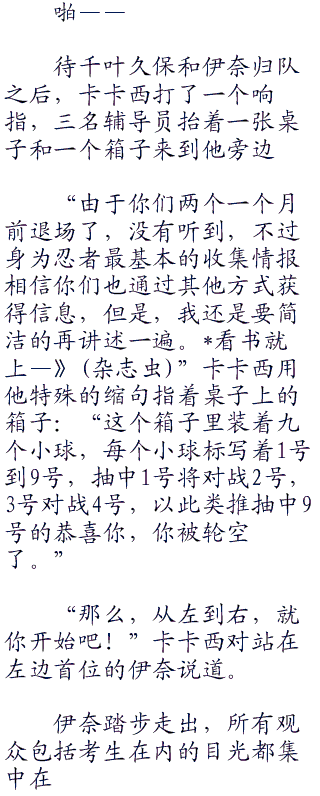 啪——
待千叶久保和伊奈归队
之后，卡卡西打了一个响
指，三名辅导员抬着一张桌
子和一个箱子来到他旁边
“由于你们两个一个月
前退场了，没有听到，不过
身为忍者最基本的收集情报
相信你们也通过其他方式获
得信息，但是，我还是要简
洁的再讲述一遍。*看书就
上—》（杂志虫）”卡卡西用
他特殊的缩句指着桌子上的
箱子：“这个箱子里装着九
个小球，每个小球标写着1号
到9号，抽中1号将对战2号，
3号对战4号，以此类推抽中9
号的恭喜你，你被轮空
了。”
“那么，从左到右，就
你开始吧！”卡卡西对站在
左边首位的伊奈说道。
伊奈踏步走出，所有观
众包括考生在内的目光都集
中在